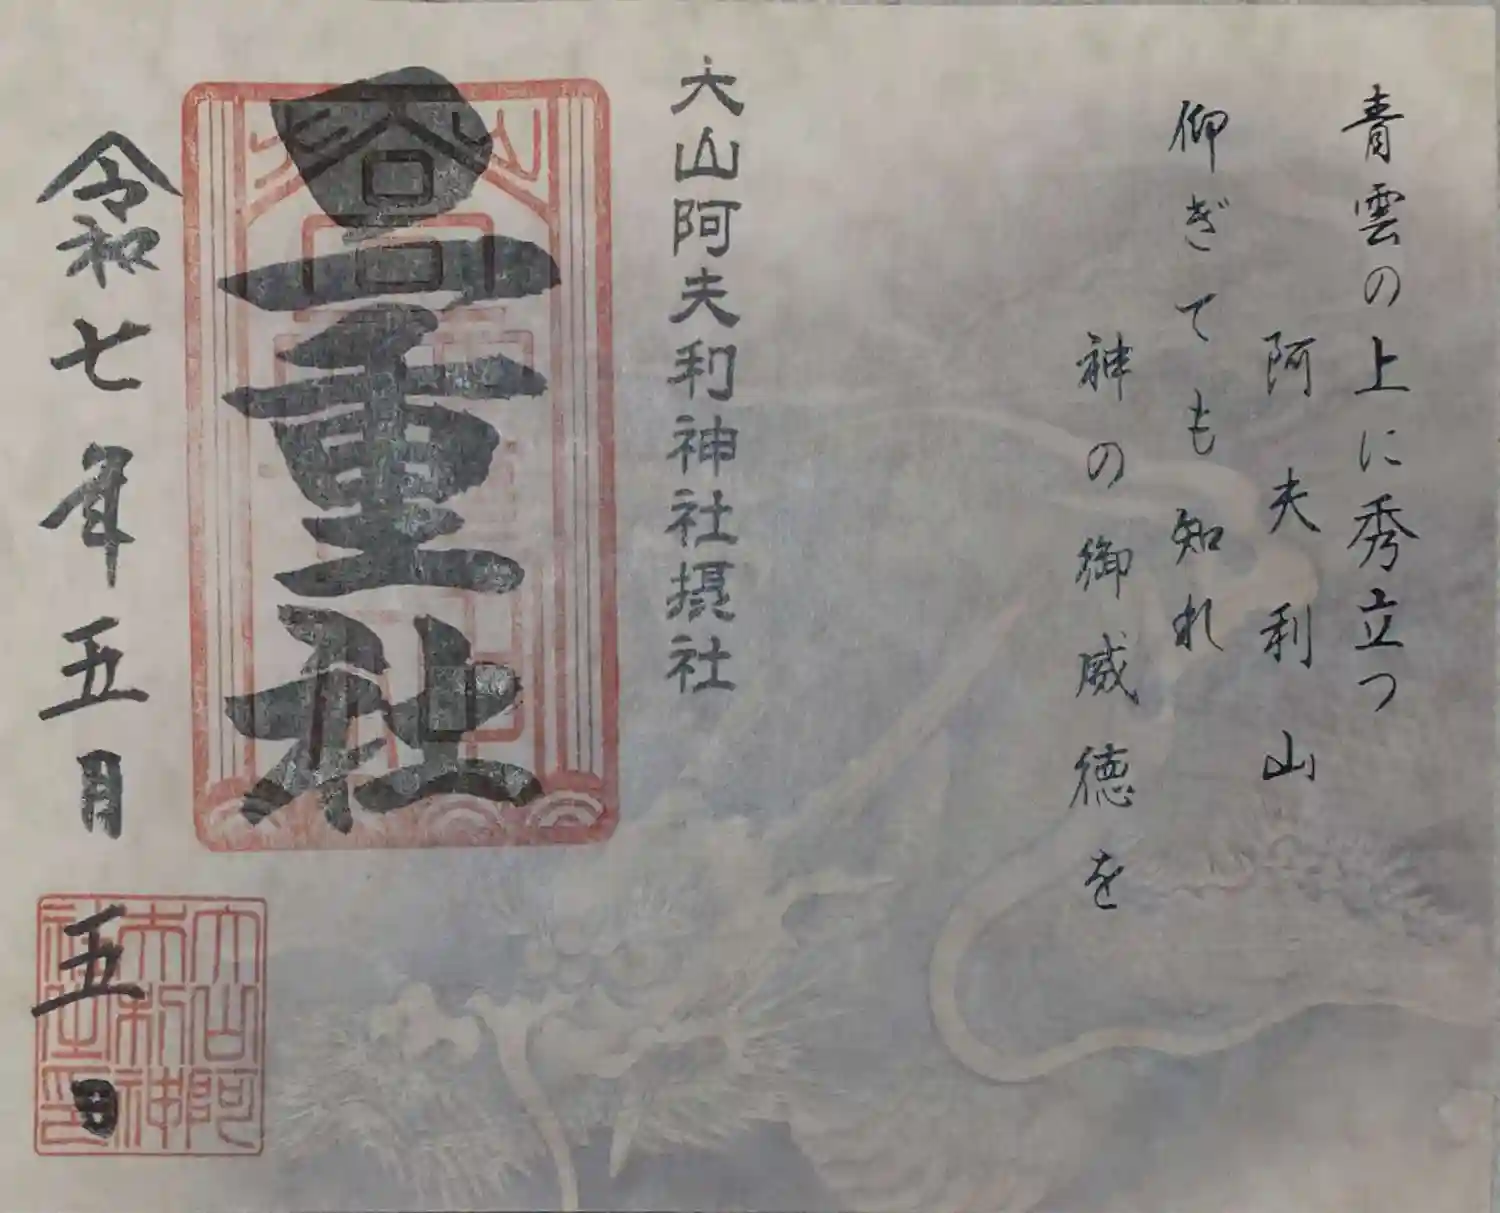 青雲の上に秀立つ
阿夫利山
仰ぎても知れ
神の御威徳を
大山阿夫利神社摂社
二重社
令和七年五月五日
大山阿
夫利神
社之印